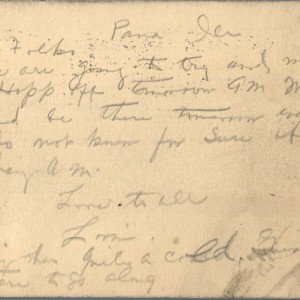 Pana Ill
Folks
are going to try and m
Hopp off tomorrow A.M.
be there tomorrow
do not know for Sure if
day A.M.
Love to all
has quite a cold,
to go along